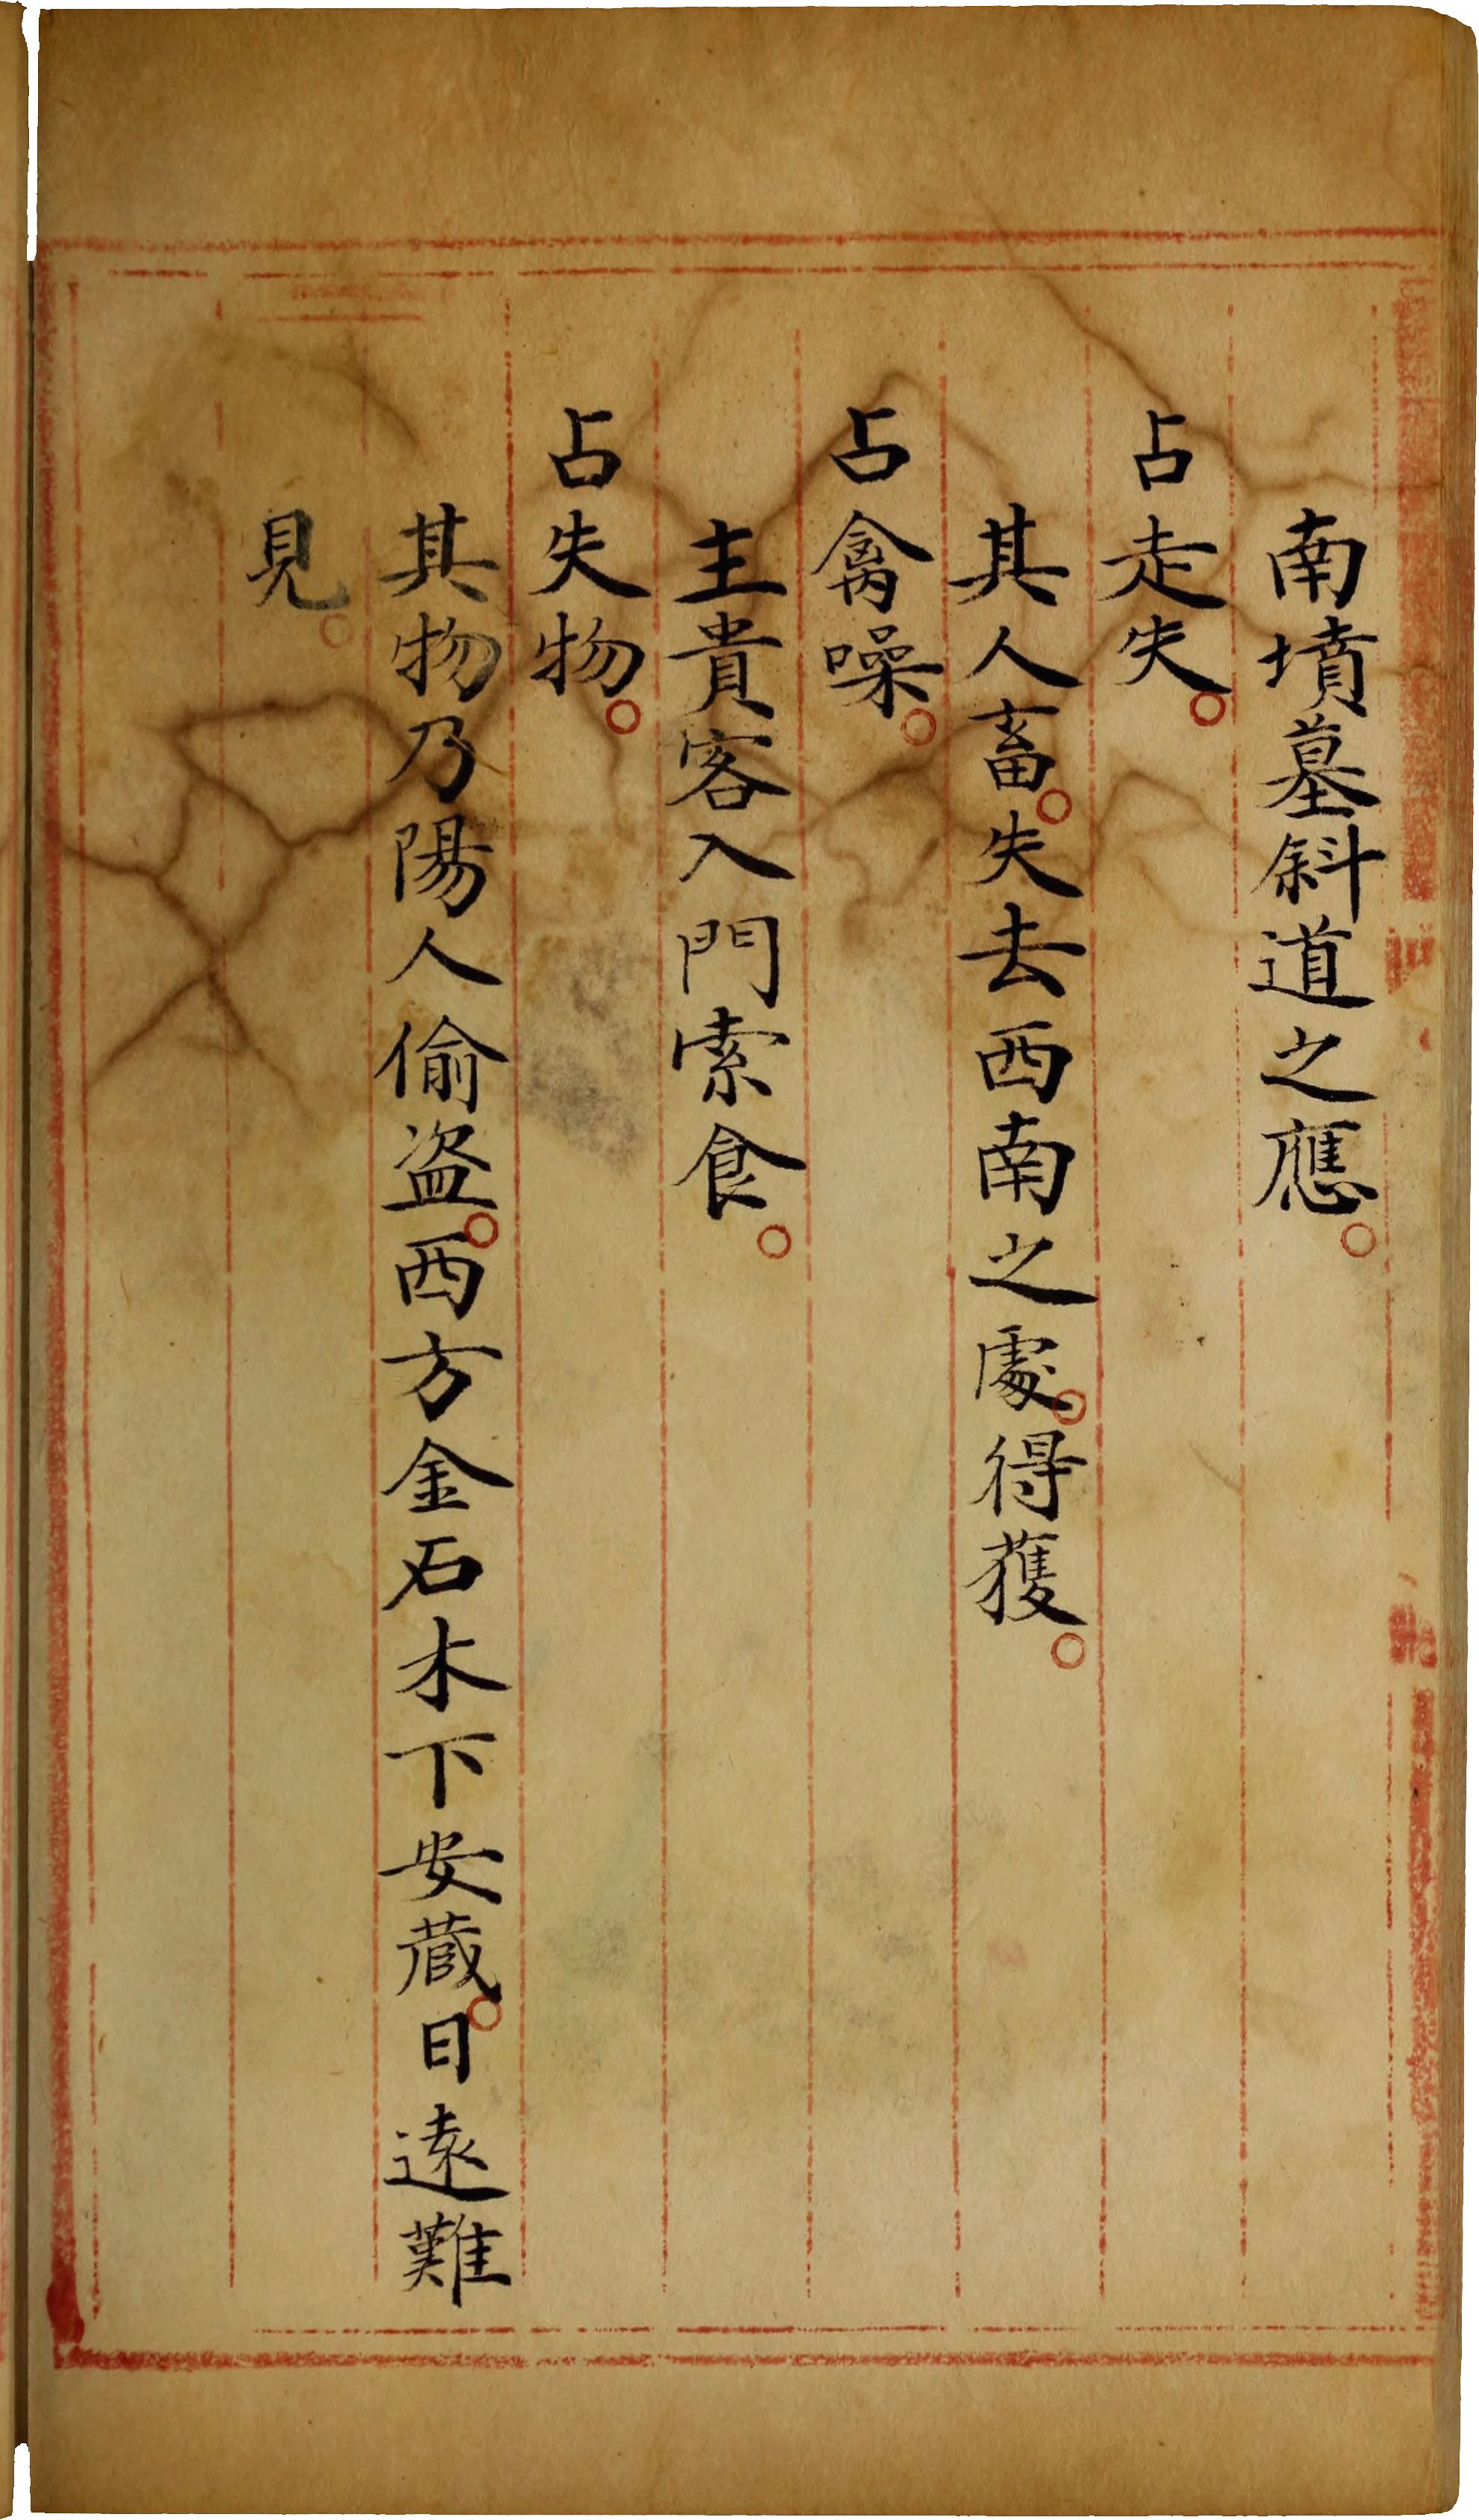 南墳墓斜道之應。
占走失。
其人畜。失去西南之處。得獲。
占禽噪。
主貴客入門索食。
占失物。
其物乃陽人偷盗。西方金石木下安蔵。日遠難
見。